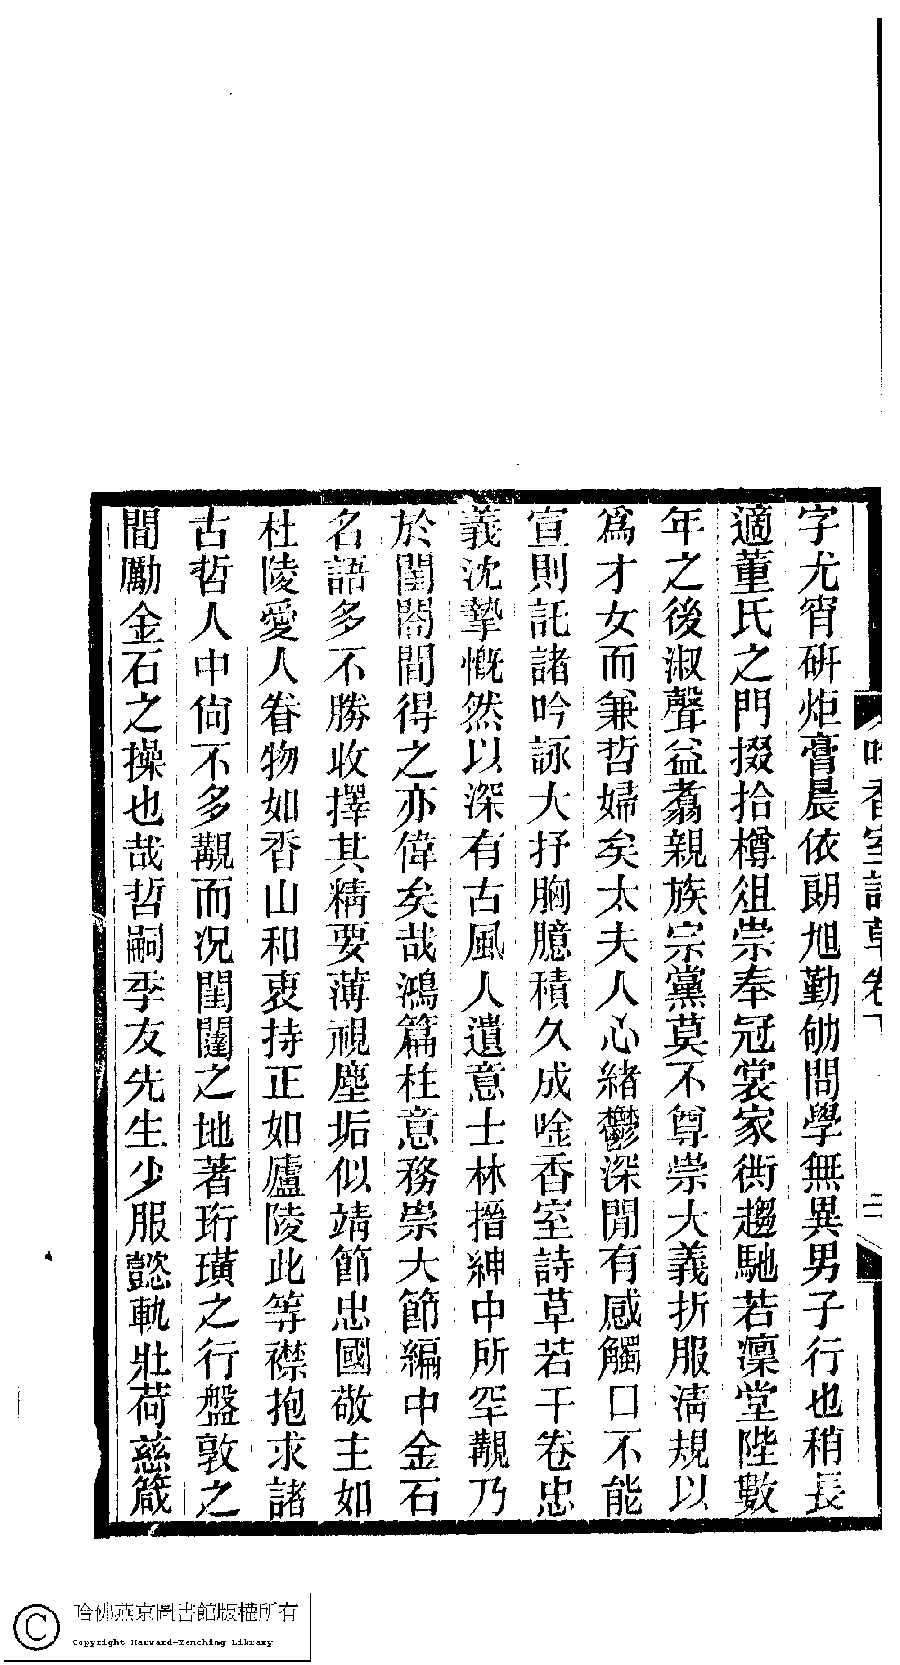 唫香室詩草卷下
二
字尤宵研炬膏晨依朗旭勤劬問學無異男子行也稍長
適董氏之門掇拾樽俎崇奉冠裳家衖趨馳若凜堂陛數
年之後淑聲益翥親族宗黨莫不尊崇大義折服淸規以
爲才女而兼哲婦矣太夫人心緒鬱深閒有感觸口不能
宣則託諸吟詠大抒胸臆積久成唫香室詩草若干卷忠
義沈摯慨然以深有古風人遺意士林搢紳中所罕覯乃
於閨閤閒得之亦偉矣哉鴻篇柱意務崇大節編中金石
名語多不勝收擇其精要薄視塵垢似靖節忠國敬主如
杜陵愛人眷物如香山和衷持正如廬陵此等襟抱求諸
古哲人中尙不多覯而况閨闥之地著珩璜之行盤敦之
閒勵金石之操也哉哲嗣季友先生少服懿軌壯荷慈箴
哈佛燕京圖書館版權所有
Copyright Harvard-Yenching Library